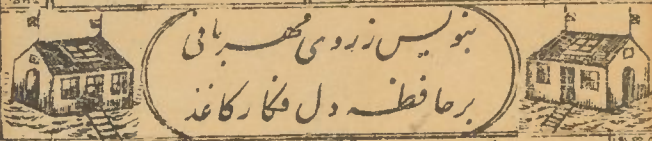 بنویس ز روی مهربانی
بر حافظ دل فکار کاغذ